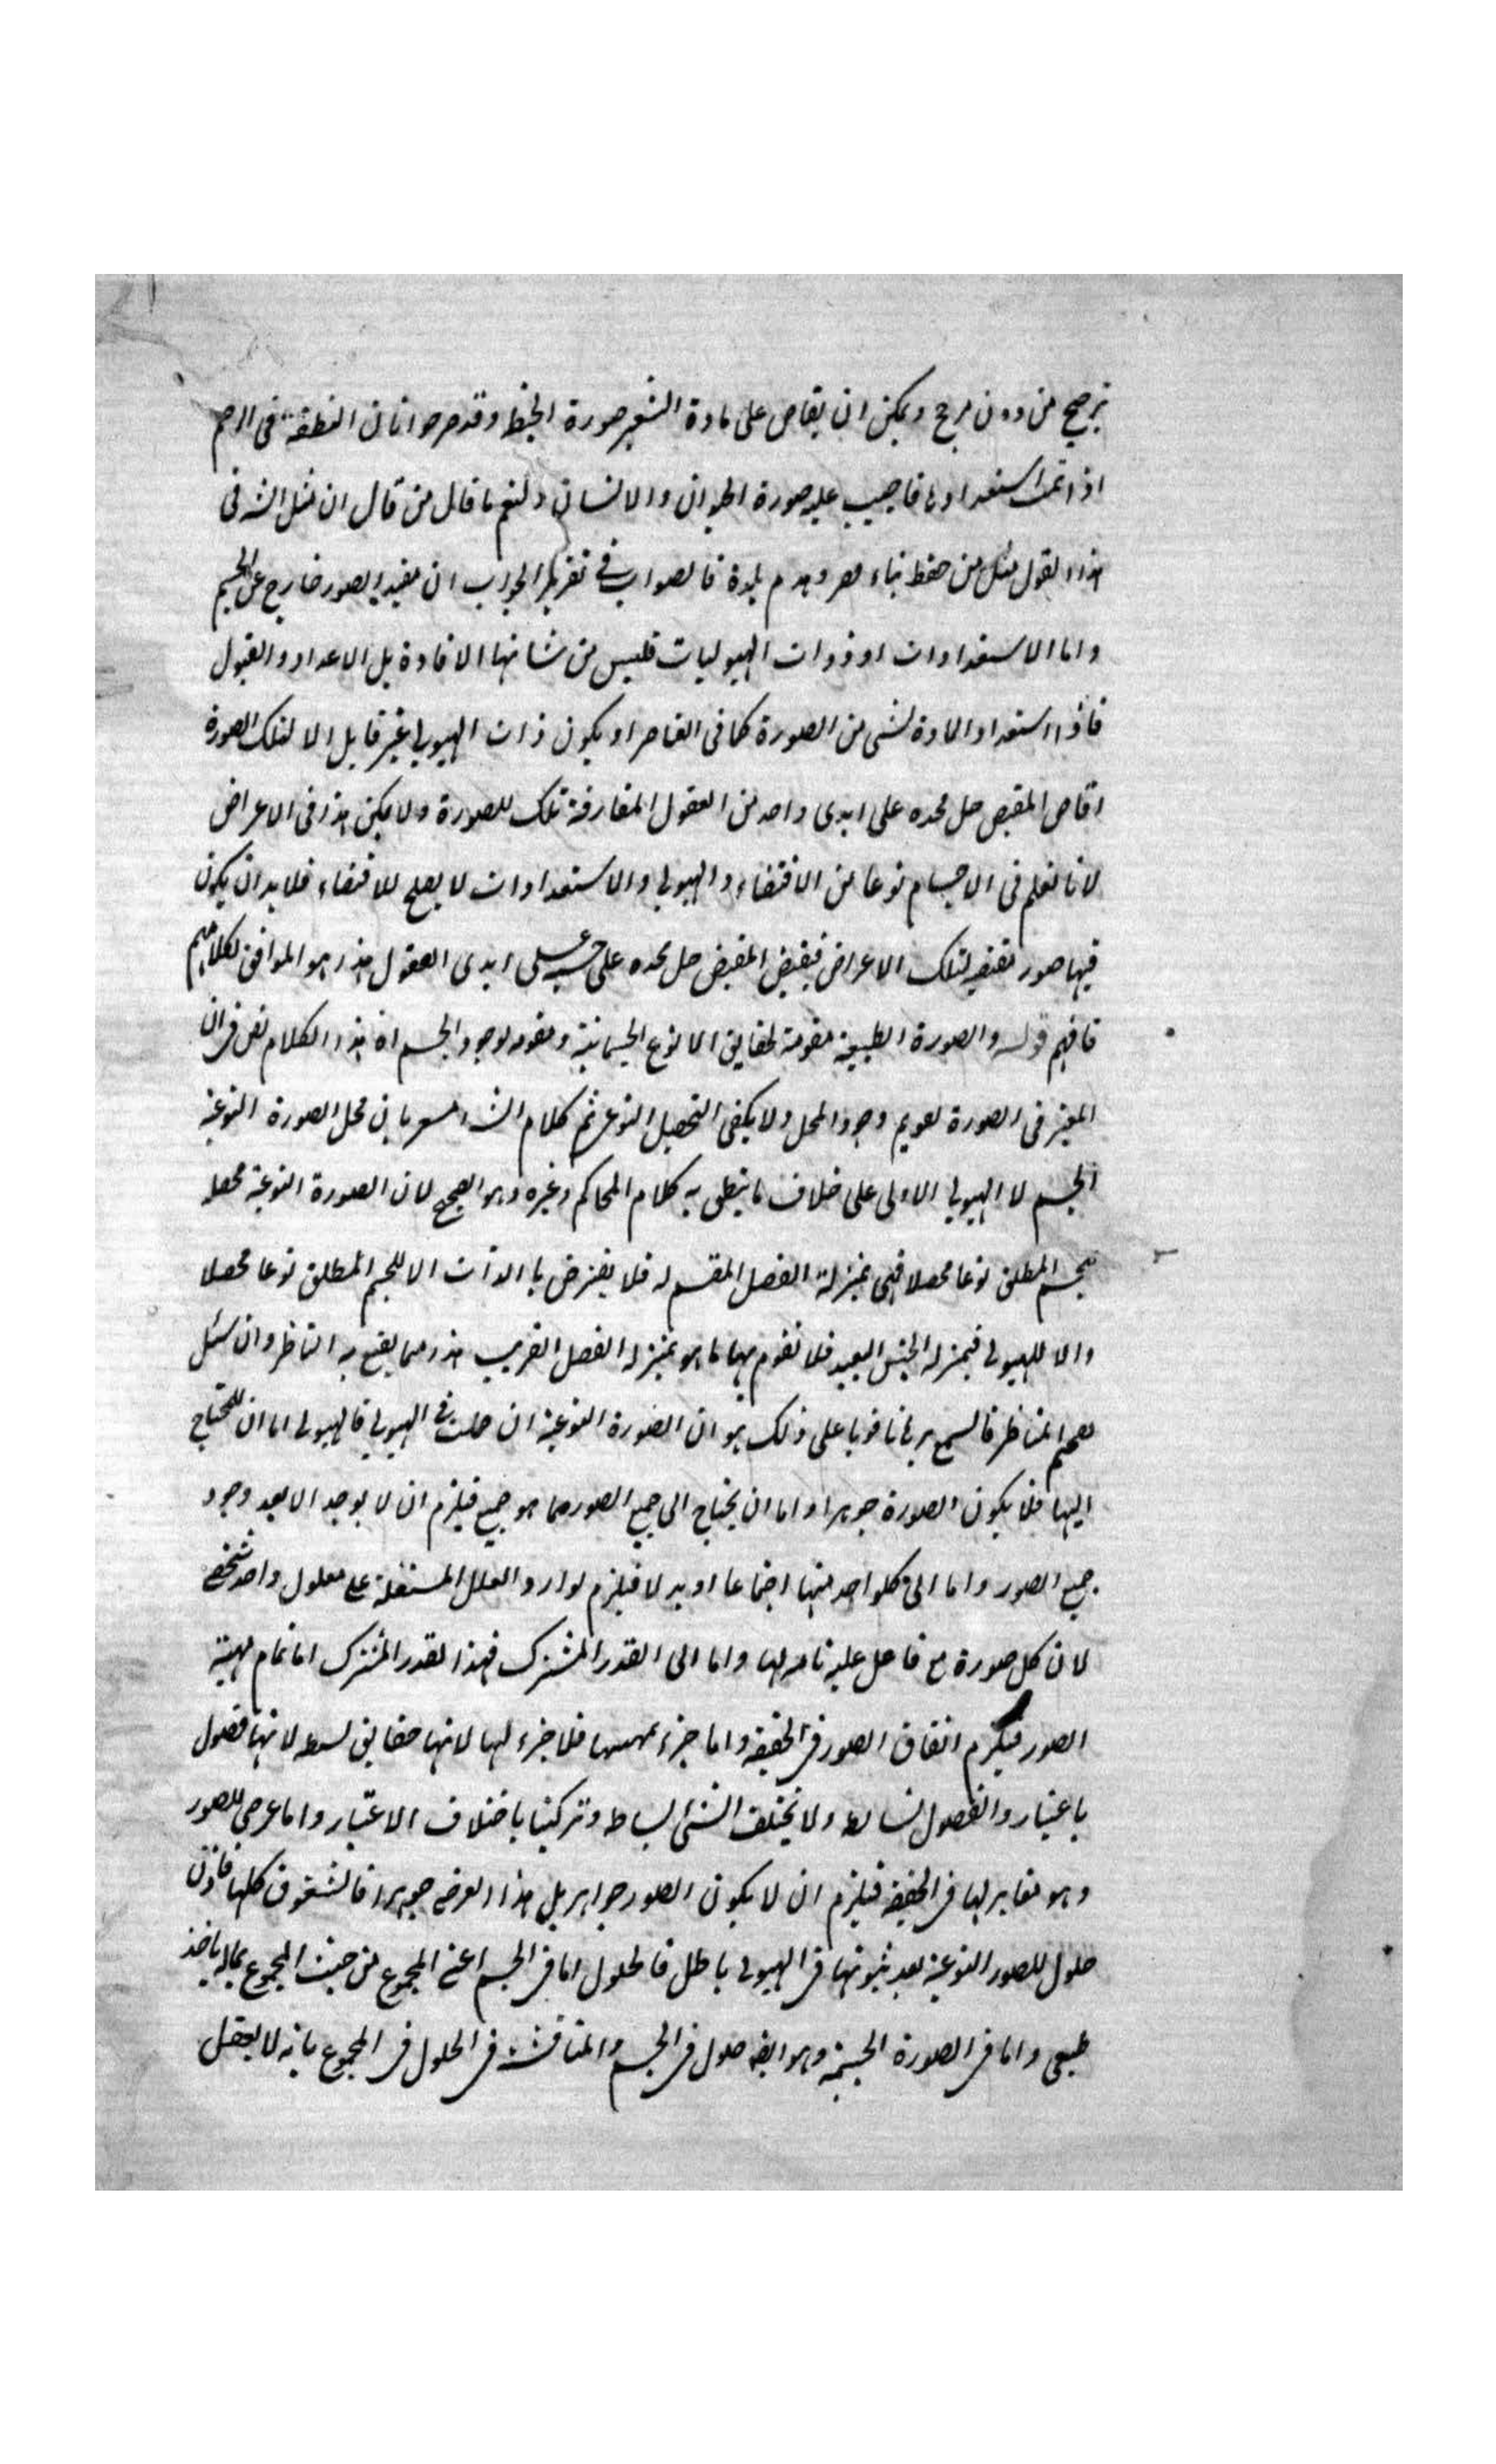 ترجيح من دون مرجح ويمكن ان يفاض على مادة الشعير صورة الحنطة وقد صرحوا بان النطفة فى الرحم
اذا تمت استعدادها فاجيب عليه صورة الحيوان والانسان ولنعم ما قال من قال ان مثل الش فى
هذا القول مثل من حفظ بناء وهدم بلدة فالصواب في تقرير الجواب ان مفيد الصور خارج عن الجسم
واما الاستعدادات او ذوات الهيوليات فليس من شانها الافادة بل الاعداد والقبول
فاذا استعداد المادة لشى من الصورة كما فى العناصر او يكون ذات الهيولى غير قابل الا لتلك الصورة
افاض المفيض جل مجده على ايدى واحد من العقول المفارقة تلك الصورة ولا يمكن هذا فى الاعراض
لانا نعلم فى الاجسام نوعا من الاقتضاء والهيولى والاستعدادات لا يصلح للاقتضاء فلا بد ان يكون
فيها صور مقتضيه لتلك الاعراض فيفيض المفيض جل مجده على ايدى العقول هذا هو الموافق لكلامهم
فافهم قوله والصورة الطبيعية مقومة لحقايق الانوع الجسمانية ومقومه لوجود الجسم اه هذا الكلام نص فى ان
المعتبر فى الصورة تقويم وجود المحل ولا يكفى التحصيل النوعى ثم كلام الش مشعر بان محل الصورة النوعية
الجسم لا الهيولى الاولى على خلاف ما ينطق به كلام المحاكم وغيره وهو الصحيح لان الصورة النوعية محصله
للجسم المطلق نوعا محصلا فهى بمنزلة الفصل المقسم له فلا يفترض بالذات الا للجسم المطلق نوعا محصلا
والا للهيولى فبمنزلة الجنس البعيد فلا تقوم بها ما هو بمنزله الفصل القريب هذا مما يقنع به الناظر وان سئل
المناظر فاسمع برهانا قويا على ذلك هو ان الصورة النوعية ان حلت في الهيولى فالهيولى اما ان لا تحتاج
اليها فلا يكون الصورة جوهرا واما ان يحتاج الى جميع الصور بما هو جميع فيلزم ان لا يوجد الا بعد وجود
جميع الصور واما الى كلواحد منها اجتماعا او بدلا فيلزم توارد العلل المستقلة على معلول واحد شخصى
لان كل صورة مع فاعل علية تامه لها واما الى القدر المشترك فهذا القدر المشترك اما تمام مهية
الصور فيلزم اتفاق الصور فى الحقيقه واما جزء مهيتها فلا جزء لها لانها حقايق بسيطه لانها فصول
باعتبار والفصول بسائط ولا يختلف الشى بساطة وتركيبا باختلاف الاعتبار واما عرضى للصور
وهو مغاير لها فى الحقيقة فيلزم ان لا يكون الصور جواهر بل هذا العرضى جوهرا فالشقوق كلها فاذن
حلول للصور النوعية بعد ثبوتها فى الهيولى باطل فالحلول اما فى الجسم اعنى المجموع من حيث المجموع
طبيعى واما فى الصورة الجسمية وهو ايضا حلول فى الجسم والمناقشة فى الحلول فى المجموع بانه لا يعقل